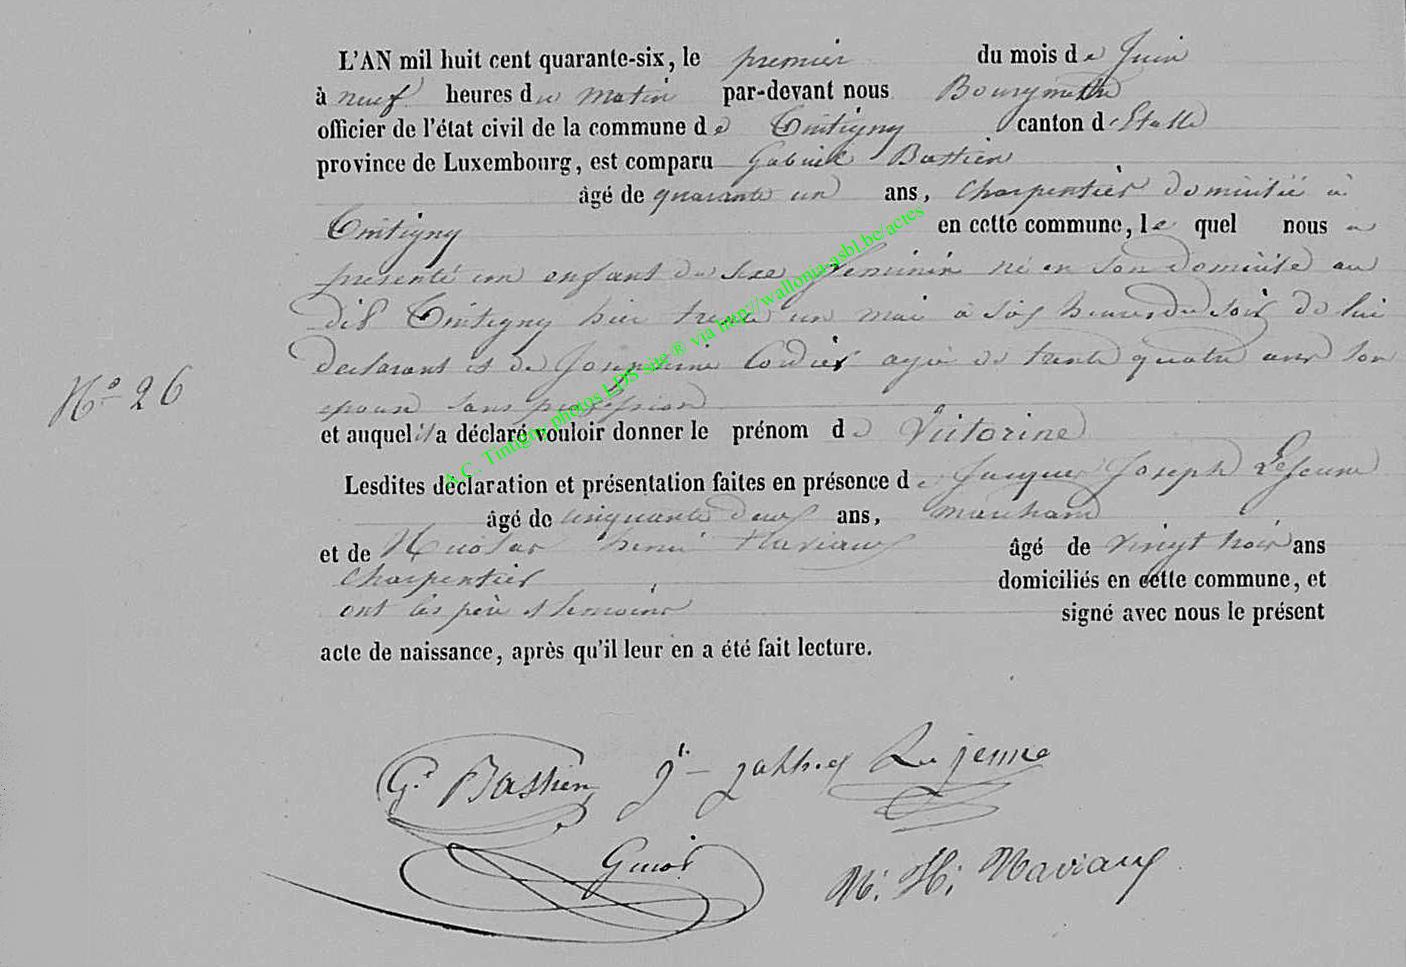 L'AN mil huit cent quarante-six, le premier du mois de Juin
à neuf heures du matin par-devant nous Bourgmestre
officier de l'état civil de la commune de Tintigny canton d'Etalle
province de Luxembourg, est comparu Gabriel Bastien
âgé de quarante un ans, charpentier domicilié à
Tintigny en cette commune, lequel nous a
présenté un enfant du sexe feminin né en son domicile au
dit Tintigny hier trente un mai à six heures du soir de lui
declarant et de Josephine Cordier agée de trente quatre ans son
epouse sans profession
et auquel il a déclaré vouloir donner le prénom de Victorine
Lesdites déclaration et présentation faites en présence de Jacques Joseph Lejeune
âgé de cinquante deux ans, marchand
et de Nicolas henri âgé de vingt trois ans
charpentier domiciliés en cette commune, et
ont les père et temoins signé avec nous le présent
acte de naissance, après qu'il leur en a été fait lecture.
N° 26
A.C. Tintigny photos LDS site ® via http://wallonia-asbl.be/actes
G. Bastien Lejeune
N. H.